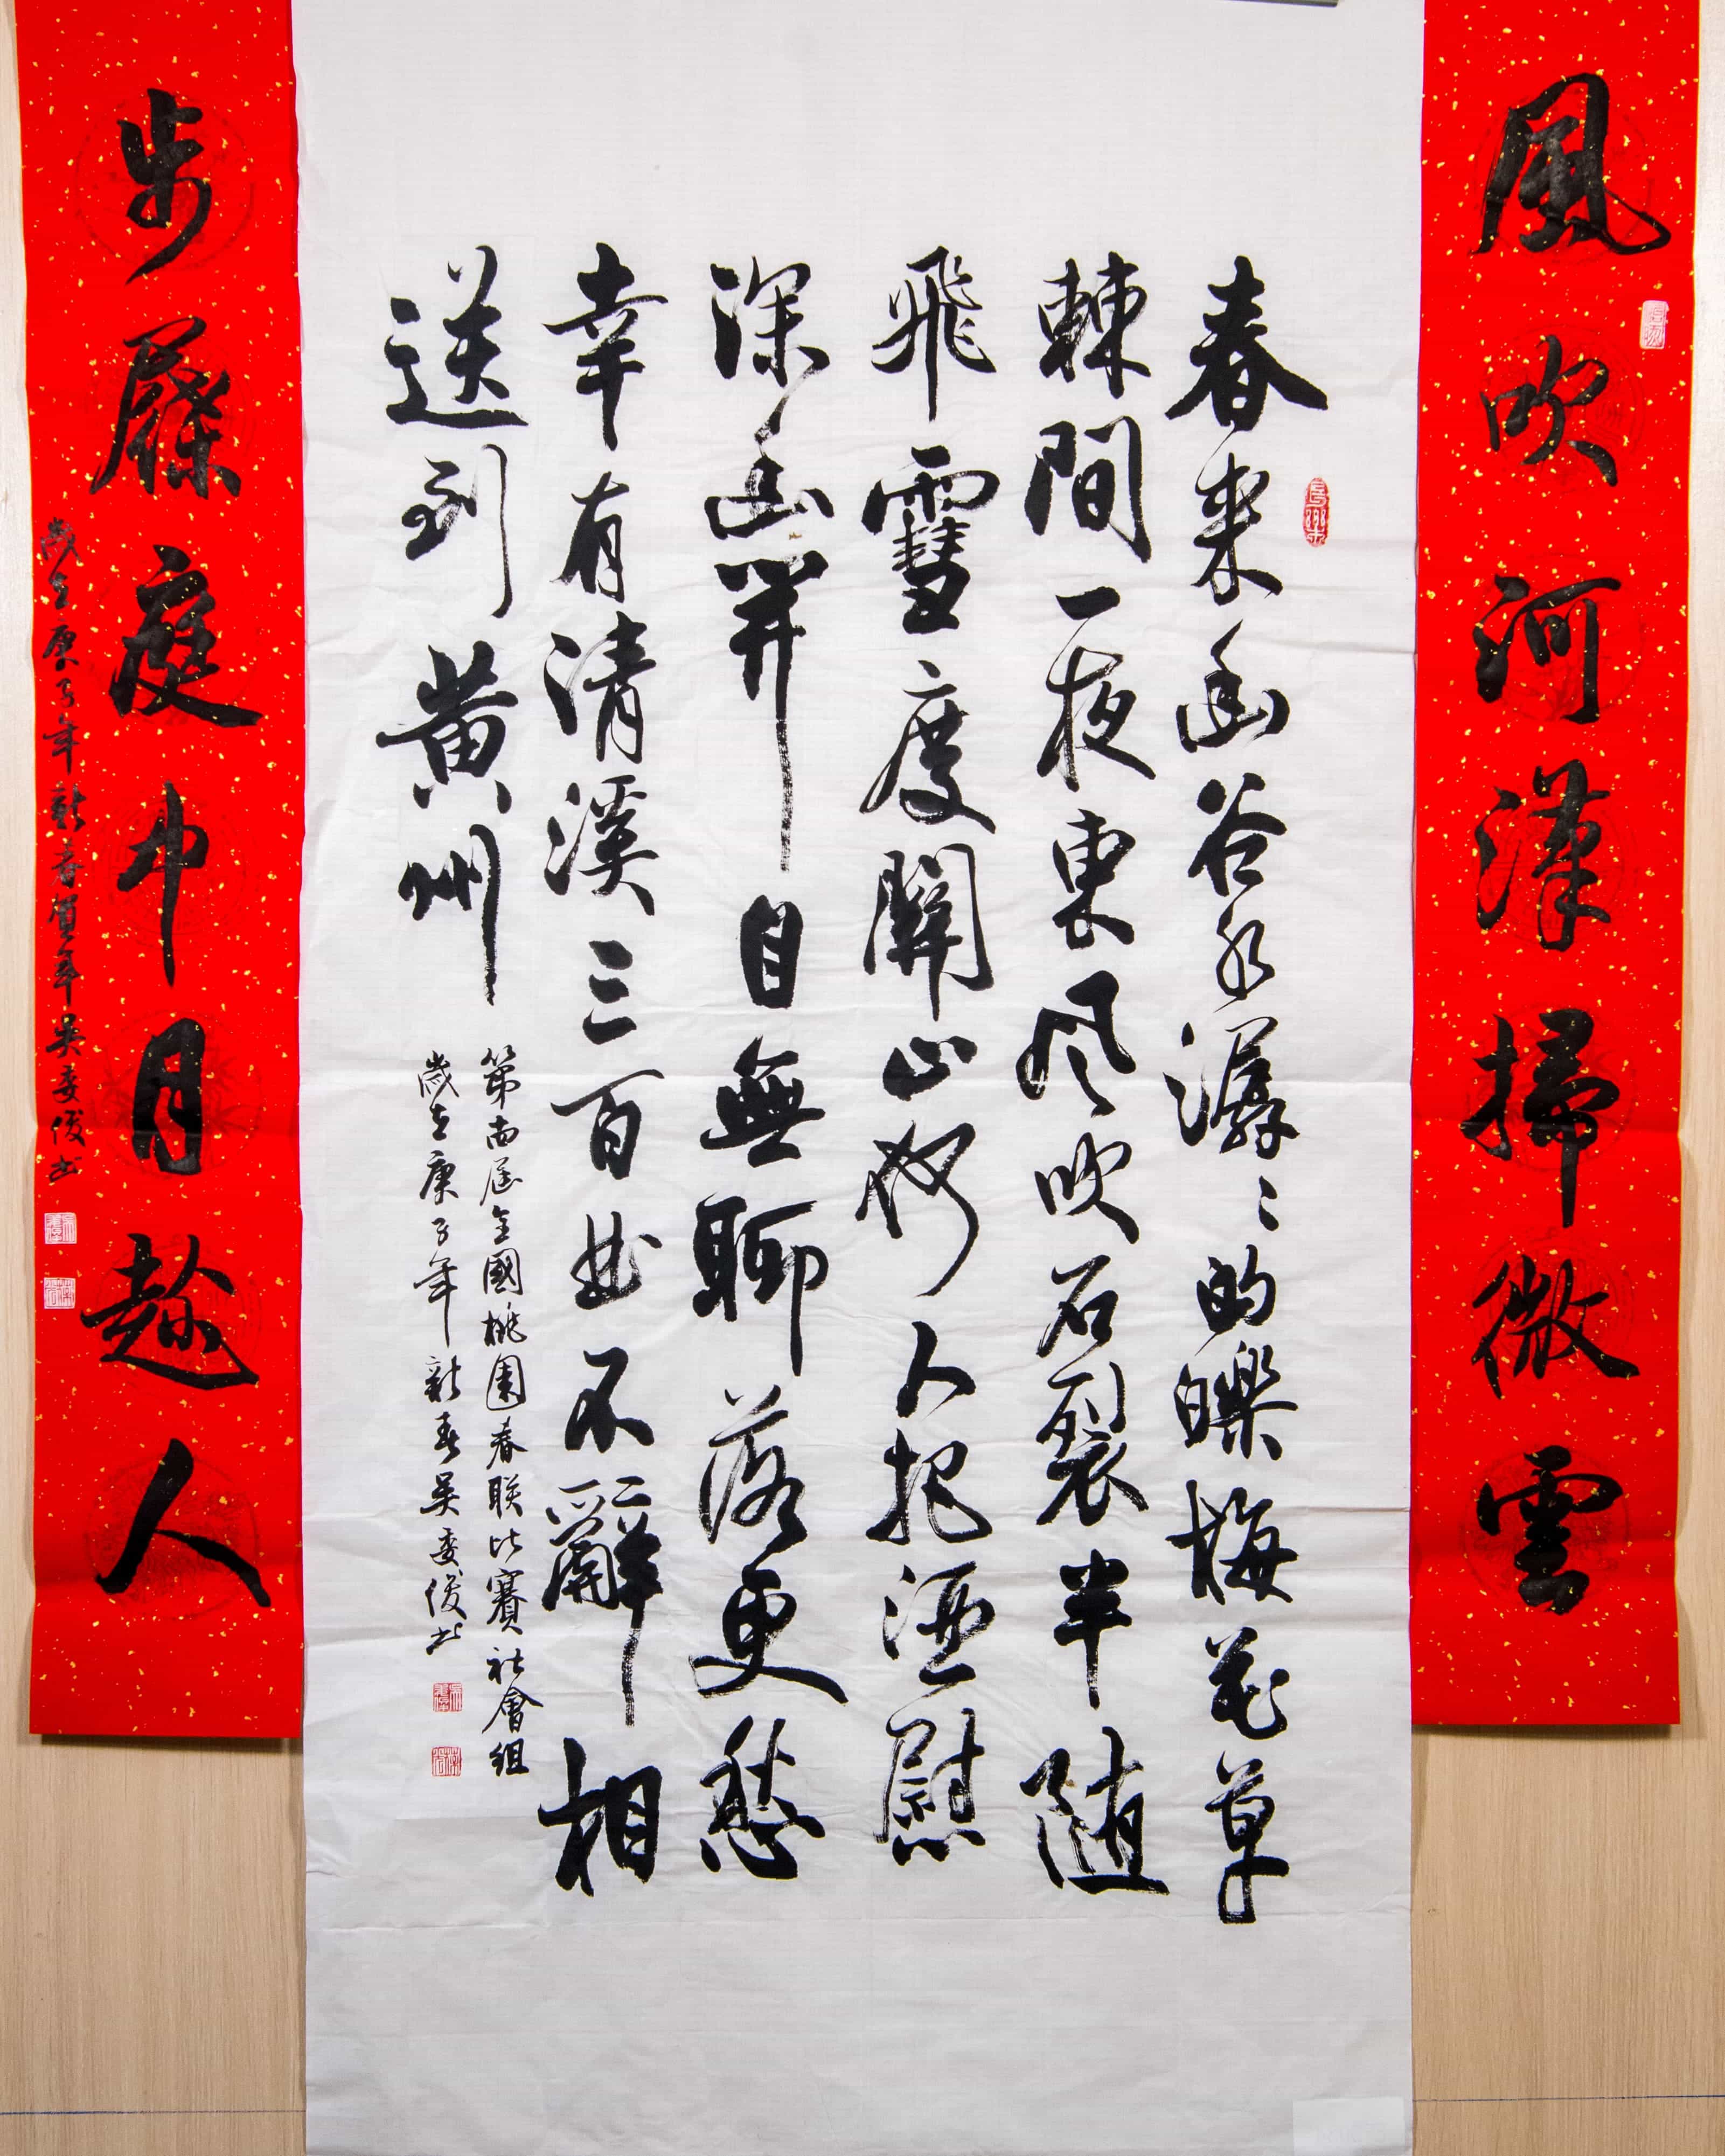 風吹河漢掃微雲
春來幽谷水潺〻的皪梅花草
棘間一夜東风吹石裂半隨
飛雪度關山何人把酒慰
深幽開自無聊落更愁
幸有清溪三百曲不辭相
送到黄州
第四屆全國桃園春联比賽社會組
歲在庚子年新春吳委俊书
步屧庭中月趁人
歲在庚子年新春賀年吳委俊书